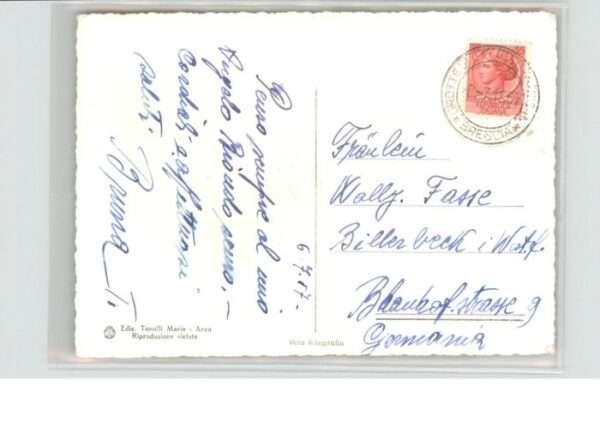 Penso sempre al mio
Angelo Biondo
Cordiali affettuosi
saluti
Bruna T.
6.7.57.
Fräulein
Wally. Fasse
Billerbeck i. Westf.
Bhanhofstrasse 9
Germania
BRESCIA
Ediz. Tonelli Mario - Arco
Riproduzione vietata
Vera fotografia